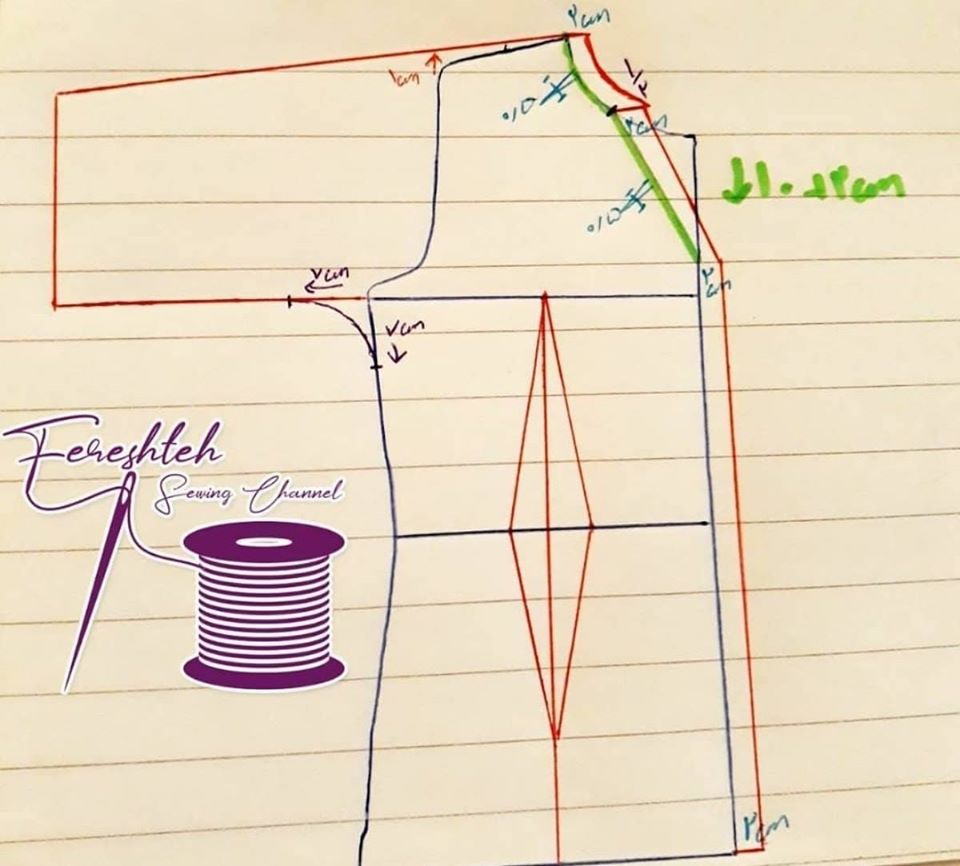 ۲cm
۱cm
۱/۲
۰/۵
۲cm
۱۰-۱۲cm
۰/۵
۷cm
۲cm
۷cm
Fereshteh
Sewing Channel
۲cm